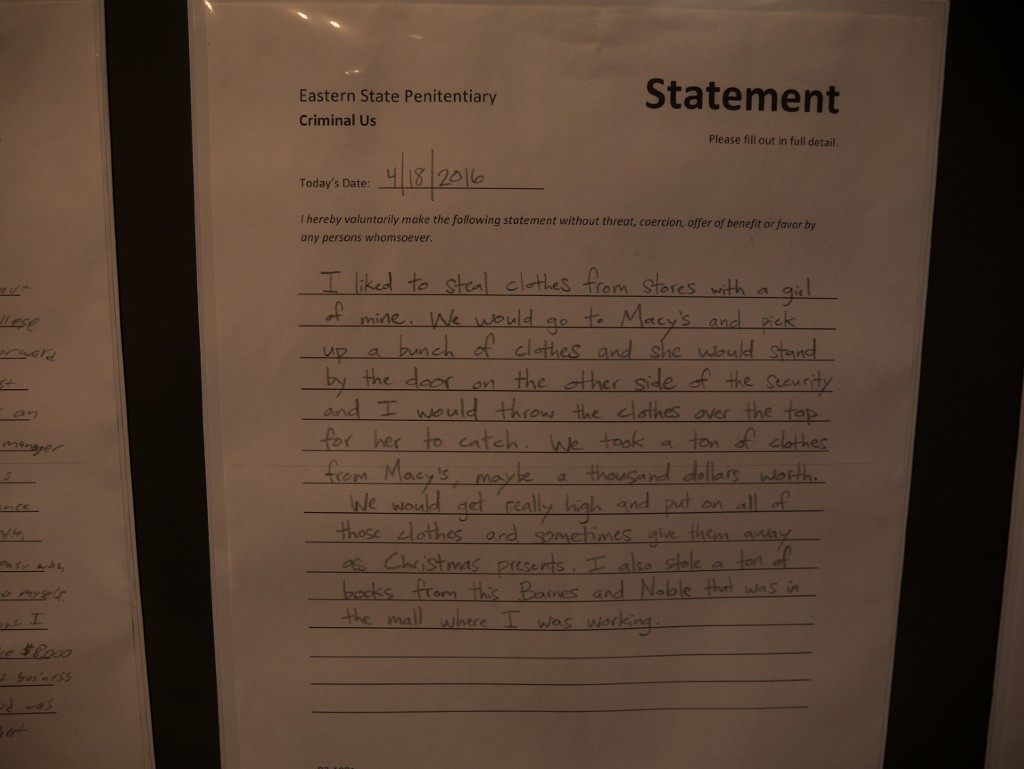 Eastern State Penitentiary
Criminal Us
Statement
Please fill out in full detail.
Today's Date: 4/18/2016
I hereby voluntarily make the following statement without threat, coercion, offer of benefit or favor by
any persons whomsoever.
I liked to steal clothes from stores with a girl
of mine. We would go to Macy's and pick
up a bunch of clothes and she would stand
by the door on the other side of the security
and I would throw the clothes over the top
for her to catch. We took a ton of clothes
from Macy's, maybe a thousand dollars worth.
We would get really high and put on all of
those clothes and sometimes give them away
as Christmas presents. I also stole a ton of
books from this Barnes and Noble that was in
the mall where I was working.
an
manager
s
I
$8,000
business
was